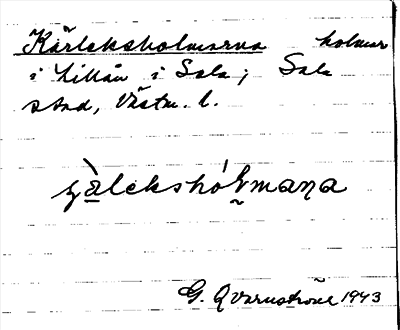 Kärleksholmarna holmar
i Lillån i Sala; Sala
stad, Västm. l.
G. Qvarnström 1943